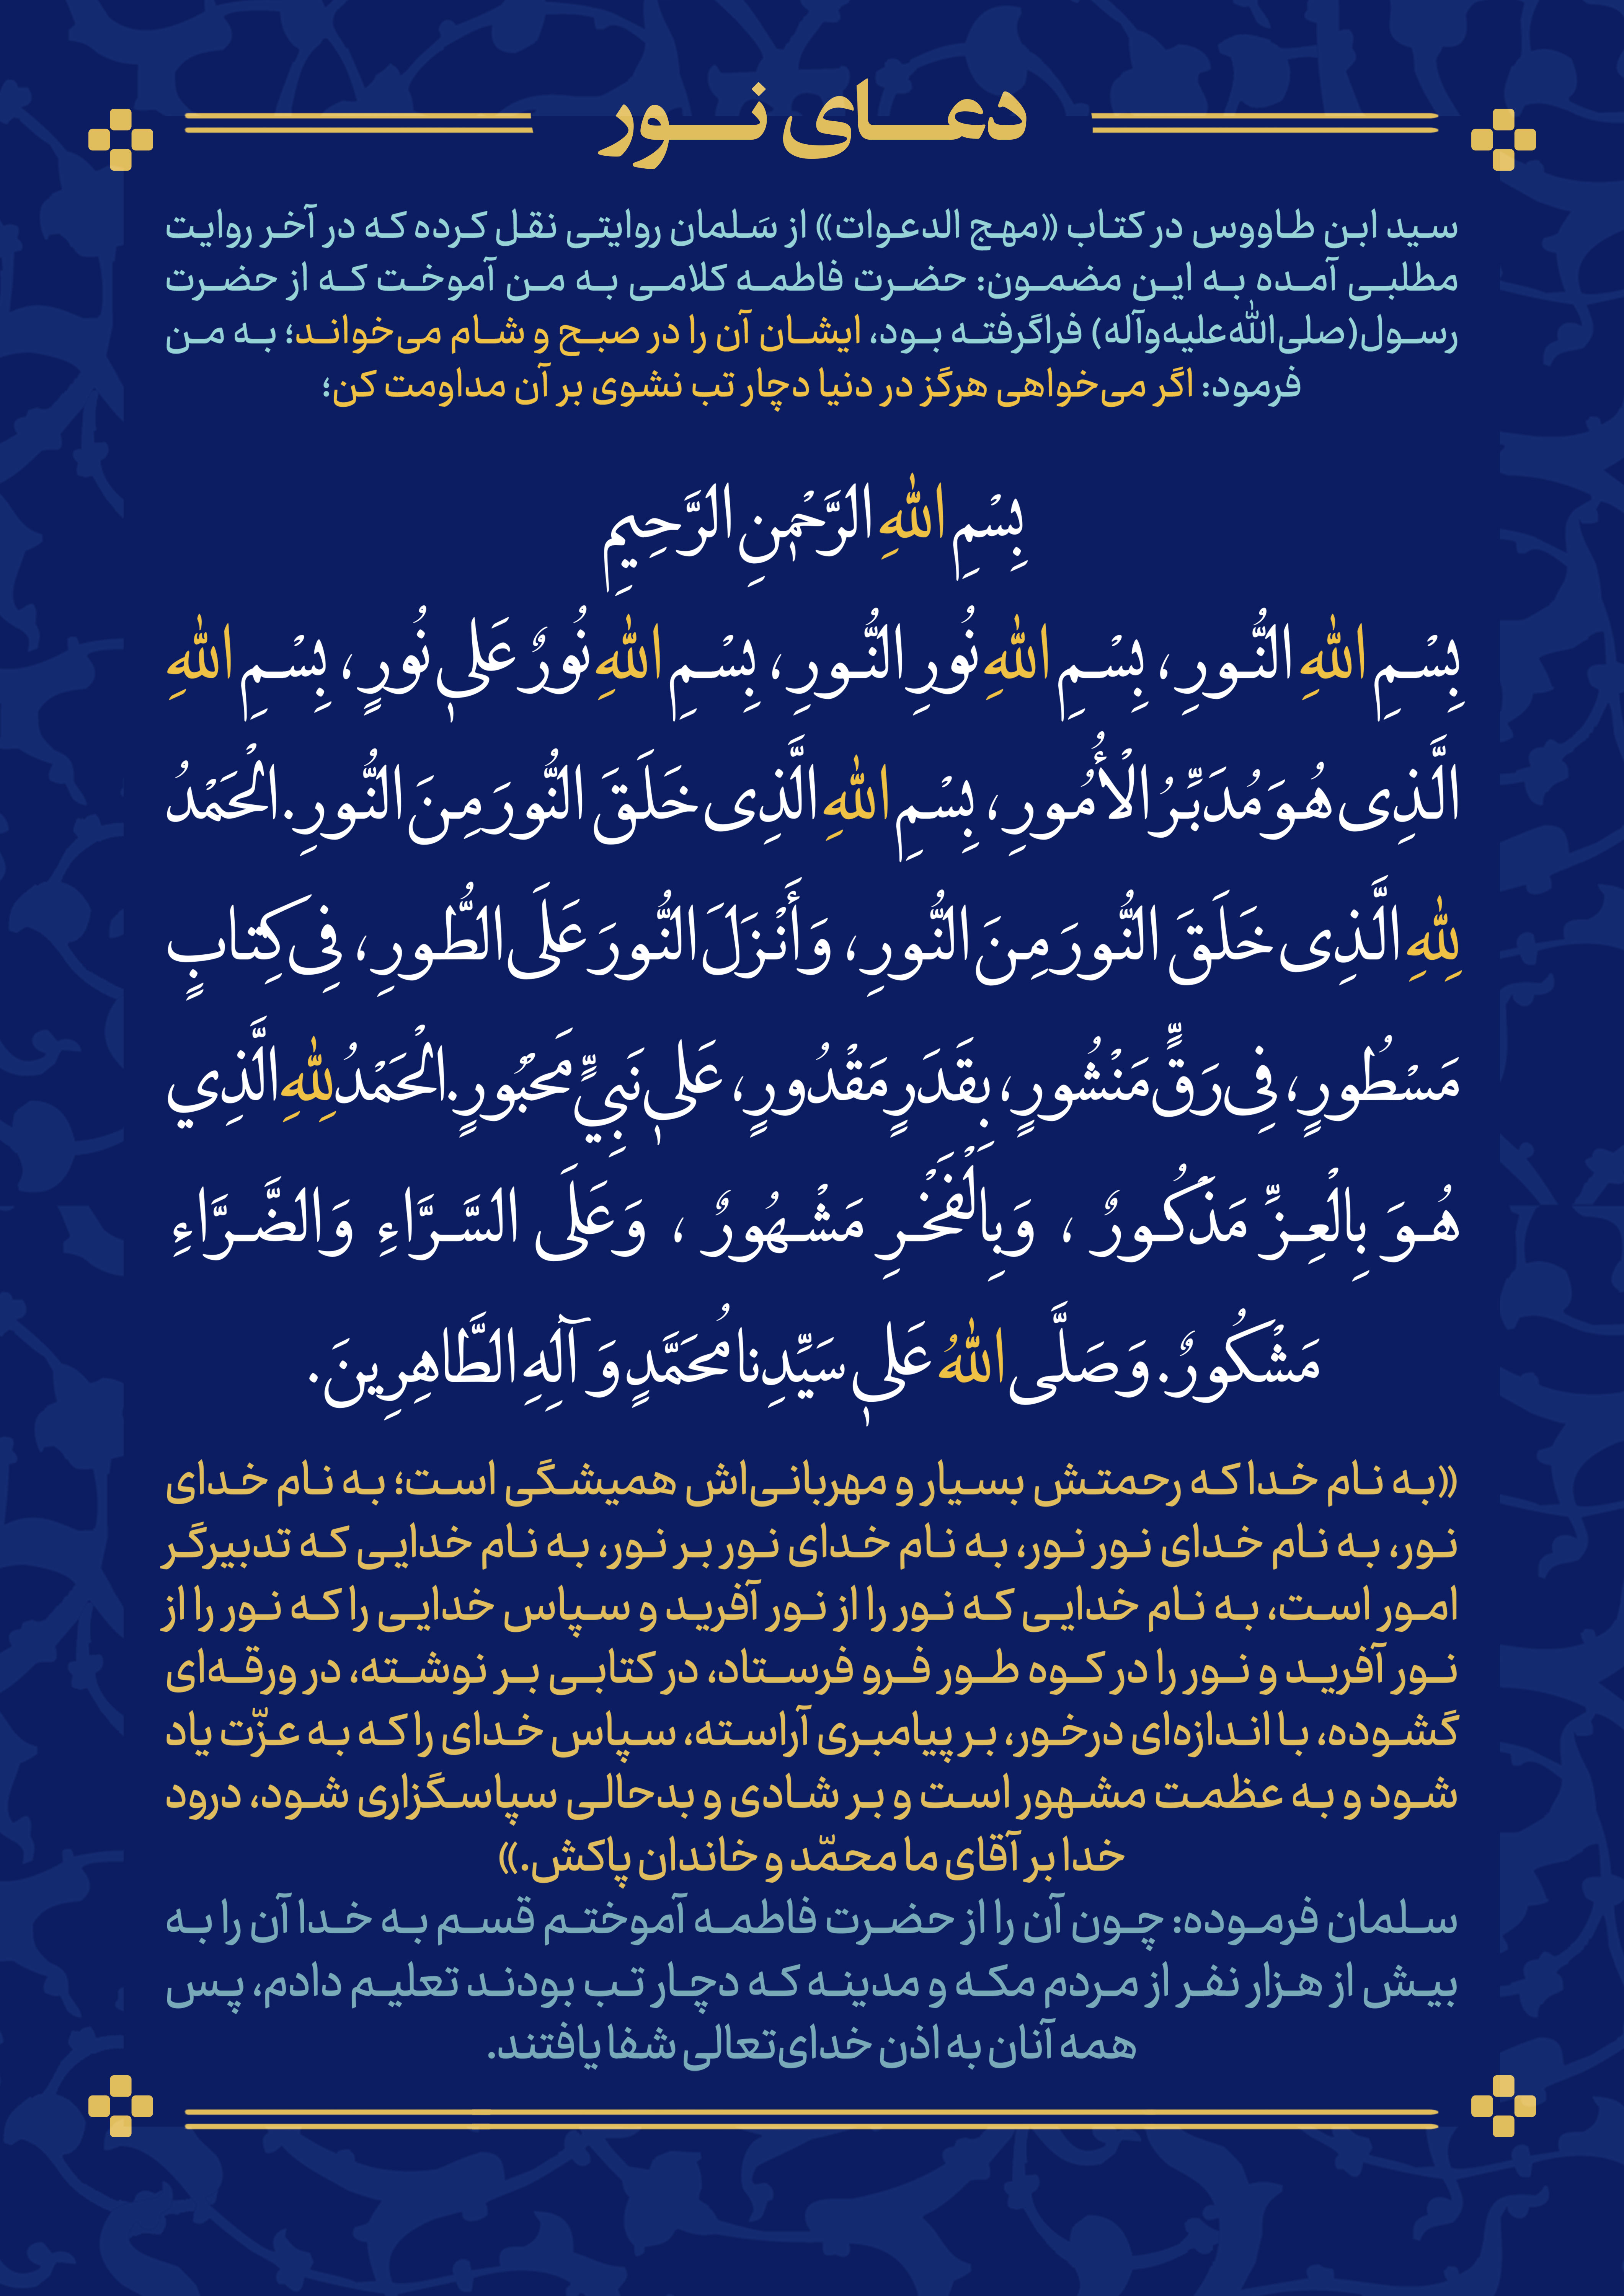 دعای نور
سید ابن طاووس در کتاب «مهج الدعوات» از سَلمان روایتی نقل کرده که در آخر روایت
مطلبی آمده به این مضمون: حضرت فاطمه کلامی به من آموخت که از حضرت
رسول(صلی‌الله‌علیه‌وآله) فراگرفته بود، ایشان آن را در صبح و شام می‌خواند؛ به من
فرمود: اگر می‌خواهی هرگز در دنیا دچار تب نشوی بر آن مداومت کن؛
بِسْمِ اللهِ الرَّحْمٰنِ الرَّحِيمِ
بِسْمِ اللهِ النُّورِ، بِسْمِ اللهِ نُورِ النُّورِ، بِسْمِ اللهِ نُورٌ عَلىٰ نُورٍ، بِسْمِ اللهِ
الَّذِى هُوَ مُدَبِّرُ الْأُمُورِ، بِسْمِ اللهِ الَّذِى خَلَقَ النُّورَ مِنَ النُّورِ. الْحَمْدُ
لِلهِ الَّذِى خَلَقَ النُّورَ مِنَ النُّورِ، وَأَنْزَلَ النُّورَ عَلَى الطُّورِ، فِى كِتابٍ
مَسْطُورٍ، فِى رَقٍّ مَنْشُورٍ، بِقَدَرٍ مَقْدُورٍ، عَلىٰ نَبِيٍّ مَحْبُورٍ. الْحَمْدُ لِلهِ الَّذِي
هُوَ بِالْعِزِّ مَذْكُورٌ، وَبِالْفَخْرِ مَشْهُورٌ، وَعَلَى السَّرَّاءِ وَالضَّرَّاءِ
مَشْكُورٌ. وَصَلَّى اللهُ عَلىٰ سَيِّدِنا مُحَمَّدٍ وَ آلِهِ الطَّاهِرِينَ.
«به نام خدا که رحمتش بسیار و مهربانی‌اش همیشگی است؛ به نام خدای
نور، به نام خدای نور نور، به نام خدای نور بر نور، به نام خدایی که تدبیرگر
امور است، به نام خدایی که نور را از نور آفرید و سپاس خدایی را که نور را از
نور آفرید و نور را در کوه طور فرو فرستاد، در کتابی بر نوشته، در ورقه‌ای
گشوده، با اندازه‌ای درخور، بر پیامبری آراسته، سپاس خدای را که به عزّت یاد
شود و به عظمت مشهور است و بر شادی و بدحالی سپاسگزاری شود، درود
خدا بر آقای ما محمّد و خاندان پاکش.»
سلمان فرموده: چون آن را از حضرت فاطمه آموختم قسم به خدا آن را به
بیش از هزار نفر از مردم مکه و مدینه که دچار تب بودند تعلیم دادم، پس
همه آنان به اذن خدای‌تعالی شفا یافتند.